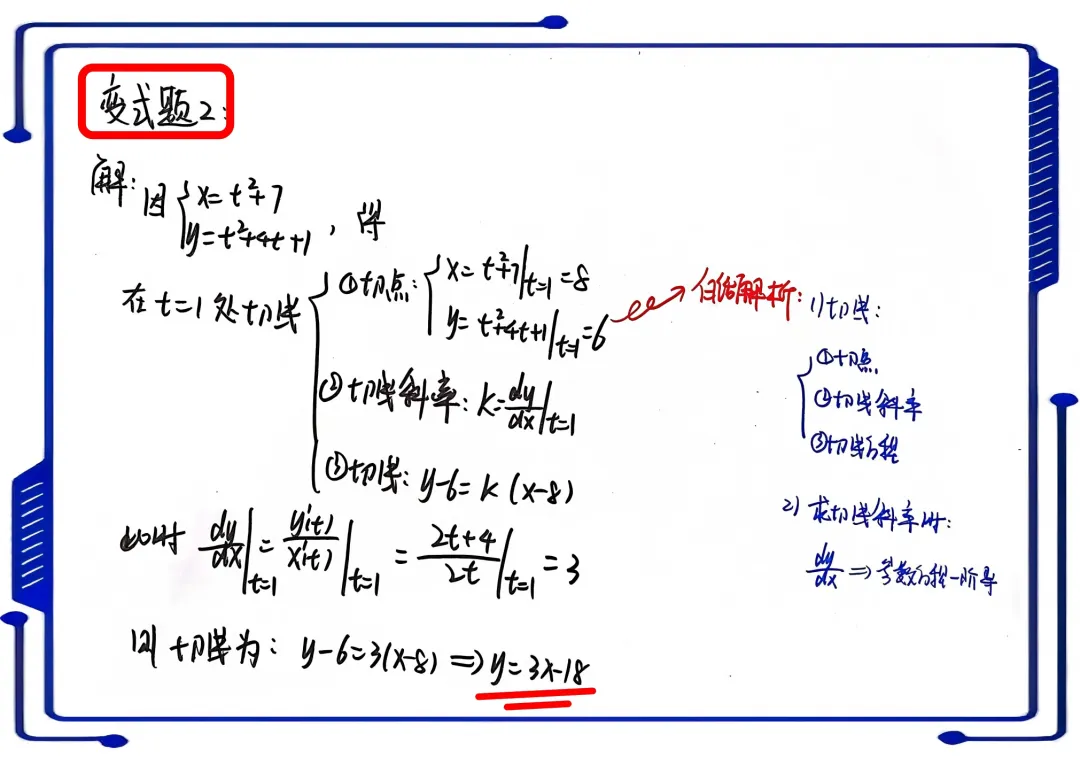 变式题2:
解:因{x=t²+7
y=t²+4t+1,得
在t=1处切线
①切点:{x=t²+7|t=1=8
y=t²+4t+1|t=1=6
②切线斜率:k=dy/dx|t=1
③切线:y-6=k(x-8)
此时 dy/dx|t=1=y'(t)/x'(t)|t=1=2t+4/2t|t=1=3
则切线为:y-6=3(x-8)⇒y=3x-18
总结解析:1)切线:
①切点
②切线斜率
③切线方程
2)求切线斜率时:
dy/dx⇒参数方程一阶导